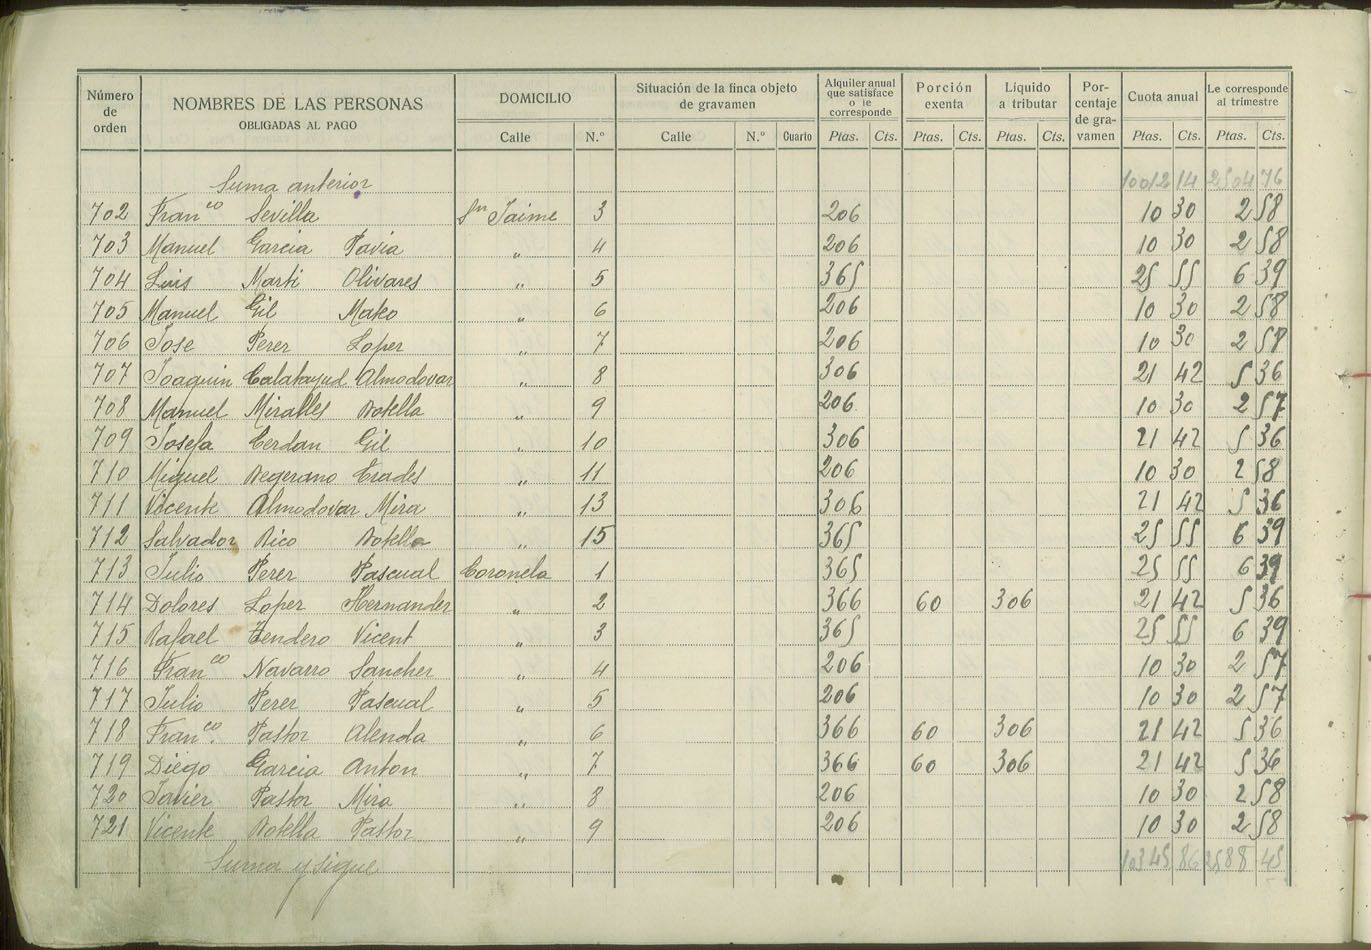 Número de orden | NOMBRES DE LAS PERSONAS OBLIGADAS AL PAGO | DOMICILIO | Situación de la finca objeto de gravamen | Alquiler anual que satisface o le corresponde | Porción exenta | Líquido a tributar | Porcentaje de gravamen | Cuota anual | Le corresponde al trimestre
Calle | N.º | Calle | N.º | Cuarto | Ptas. | Cts. | Ptas. | Cts. | Ptas. | Cts. | Ptas. | Cts. | Ptas. | Cts.
Suma anterior 10012 14 2504 76
702 Fran.co Sevilla Sn Jaime 3 206 10 30 2 58
703 Manuel Garcia Pavia " 4 206 10 30 2 58
704 Luis Marti Olivares " 5 365 25 55 6 39
705 Manuel Gil Mateo " 6 206 10 30 2 58
706 Jose Perez Lopez " 7 206 10 30 2 58
707 Joaquin Calatayud Almodovar " 8 306 21 42 5 36
708 Manuel Miralles Botella " 9 206 10 30 2 57
709 Josefa Cerdan Gil " 10 306 21 42 5 36
710 Miguel Begerano Crades " 11 206 10 30 2 58
711 Vicente Almodovar Mira " 13 306 21 42 5 36
712 Salvador Rico Botella " 15 365 25 55 6 39
713 Julio Perez Pascual Coronela 1 365 25 55 6 39
714 Dolores Lopez Hernandez " 2 366 60 306 21 42 5 36
715 Rafael Tendero Vicent " 3 365 25 55 6 39
716 Fran.co Navarro Sanchez " 4 206 10 30 2 57
717 Julio Perez Pascual " 5 206 10 30 2 57
718 Fran.co Pastor Alenda " 6 366 60 306 21 42 5 36
719 Diego Garcia Anton " 7 366 60 306 21 42 5 36
720 Javier Pastor Mira " 8 206 10 30 2 58
721 Vicente Botella Pastor " 9 206 10 30 2 58
Suma y sigue 10345 86 2588 45